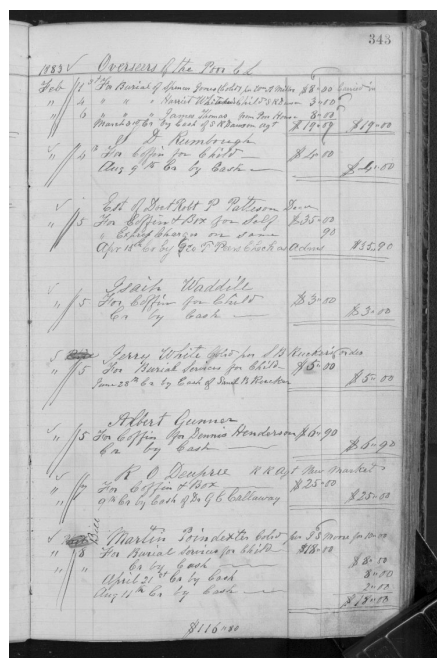 343
1883 Overseers of the Poor Cl
Feb 1st For Burial of Spencer Jones (Cold) for $8=00
" 4 " " " Harriet Child S K Dawson 3=00
" 6 " " " James Thomas from Poor House 8=00
Cr by Cash of S K Dawson agt $19=00 $19=00
J D Rumbough
" 4th For Coffin for Child $4=00
Aug 9th Cr by Cash $4=00
Est of Doct Robt P Patteson Decd
" 5 For Coffin & Box for Self $35=00
" Express Charges on same 90
Apr 18th Cr by Geo T Check as Admr $35=90
Waddill
" 5 For Coffin for Child $3=00
Cr by Cash $3=00
Jerry White Cold per S B Rucker's order
" 5 For Burial Services for Child $5=00
June 28th Cr by Cash of B Rucker $5=00
Albert Gunner
" 5 For Coffin for Dennis Henderson $6=90
Cr by Cash $6=90
R O Deupree R R Agt New Market
" 7 For Coffin & Box $25=00
9th Cr by Cash of Dr G C Callaway $25=00
Bill
Martin Poindexter Cold per J S Moore for 10=00
" 8 For Burial Services for Child $18=00
" " Cr by Cash $8=00
April 21st Cr by Cash 8=00
Aug 11th Cr by Cash 2=00
$18=00
$116=80